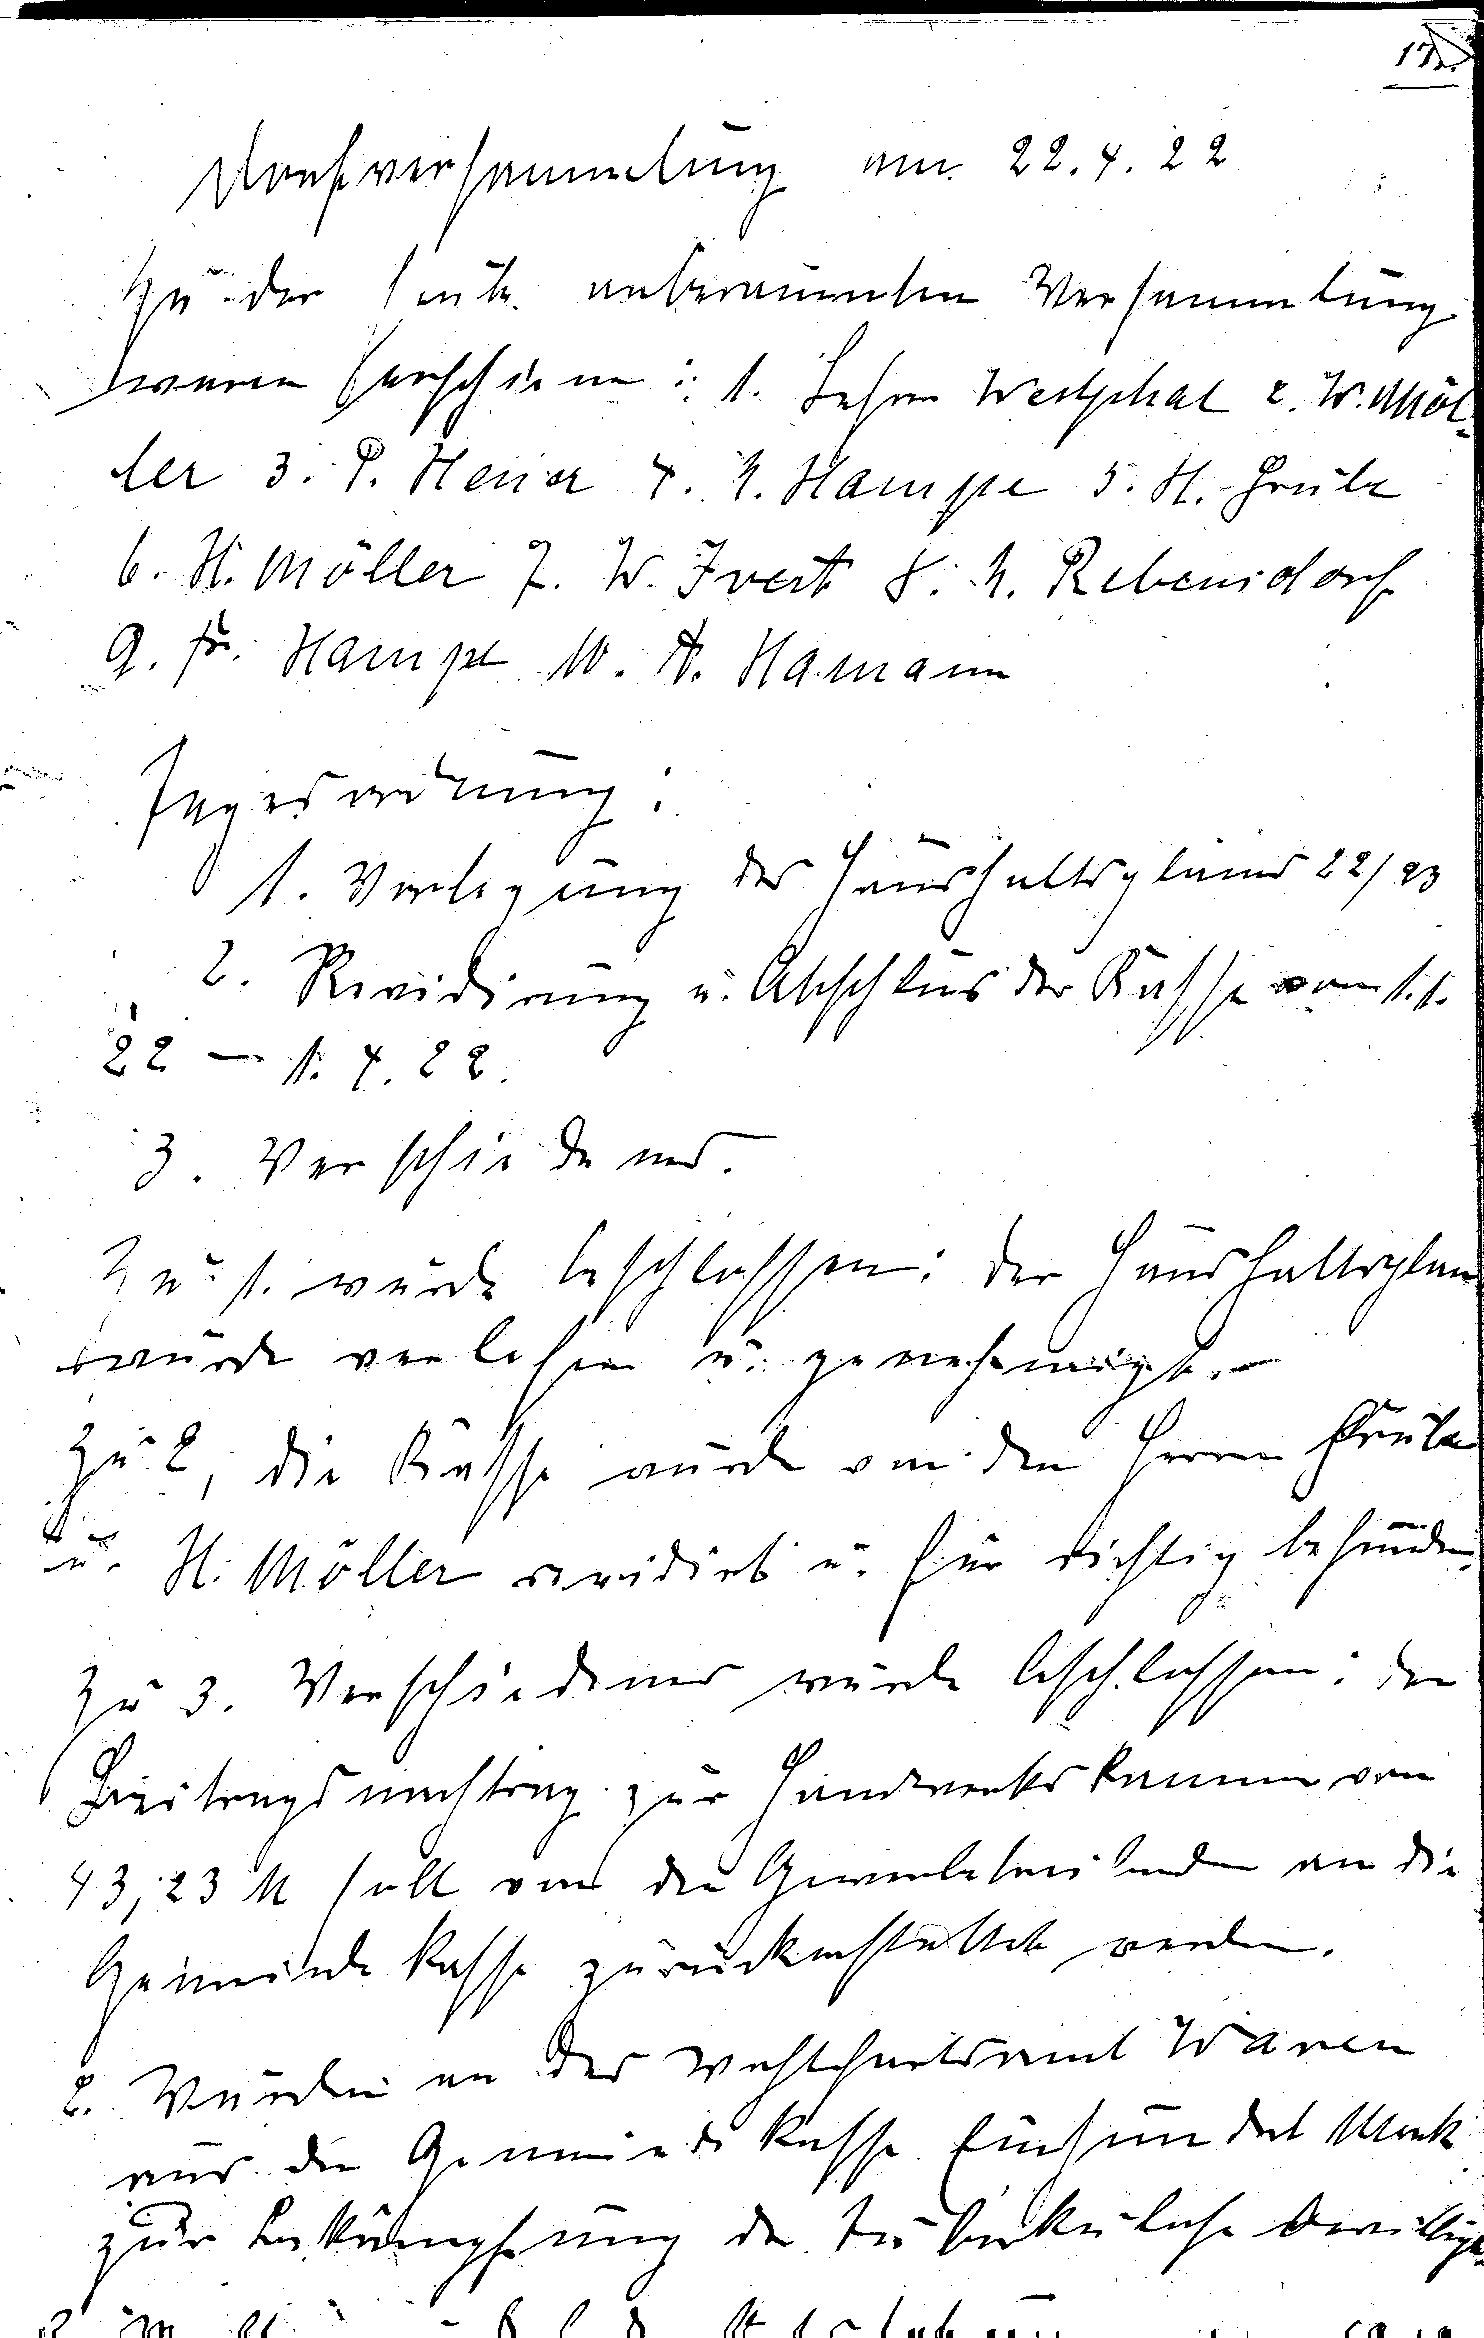 Dorfversammlung am 22.4.22
Zu der heute anberaumten Versammlung
waren erschienen: 1. Lehrer Westphal 2. W. Möl-
ler 3. P. Heuer 4. H. Hampe 5. H. Grube
6. H. Möller 7. W. Ivert 8. H. Rebensdorf
9. Fr. Hampe 10. A. Hamann
Tagesordnung:
1. Verlegung des Haushaltsplanes 22/23
2. Revidirung u. Abschluss der Kasse vom 1.1.
22 — 1.4.22.
3. Verschiedenes.
Zu 1. wurde beschlossen: der Haushaltsplan
wurde verlesen u. genehmigt. —
Zu 2, die Kasse wurde von den Herren Grube
u. H. Möller revidirt u. für richtig befunden.
Zu 3. Verschiedenes wurde beschlossen: der
Beitragsnachtrag zur Handwerkskammer von
43,23 M soll von den Gewerbetreibenden an die
Gemeinde Kasse zurückerstattet werden.
2. Wurden an das Wohlfahrtsamt Waren
aus der Gemeinde Kasse Einhundert Mark
zur Bekämpfung der Tuberkulose bewilligt.